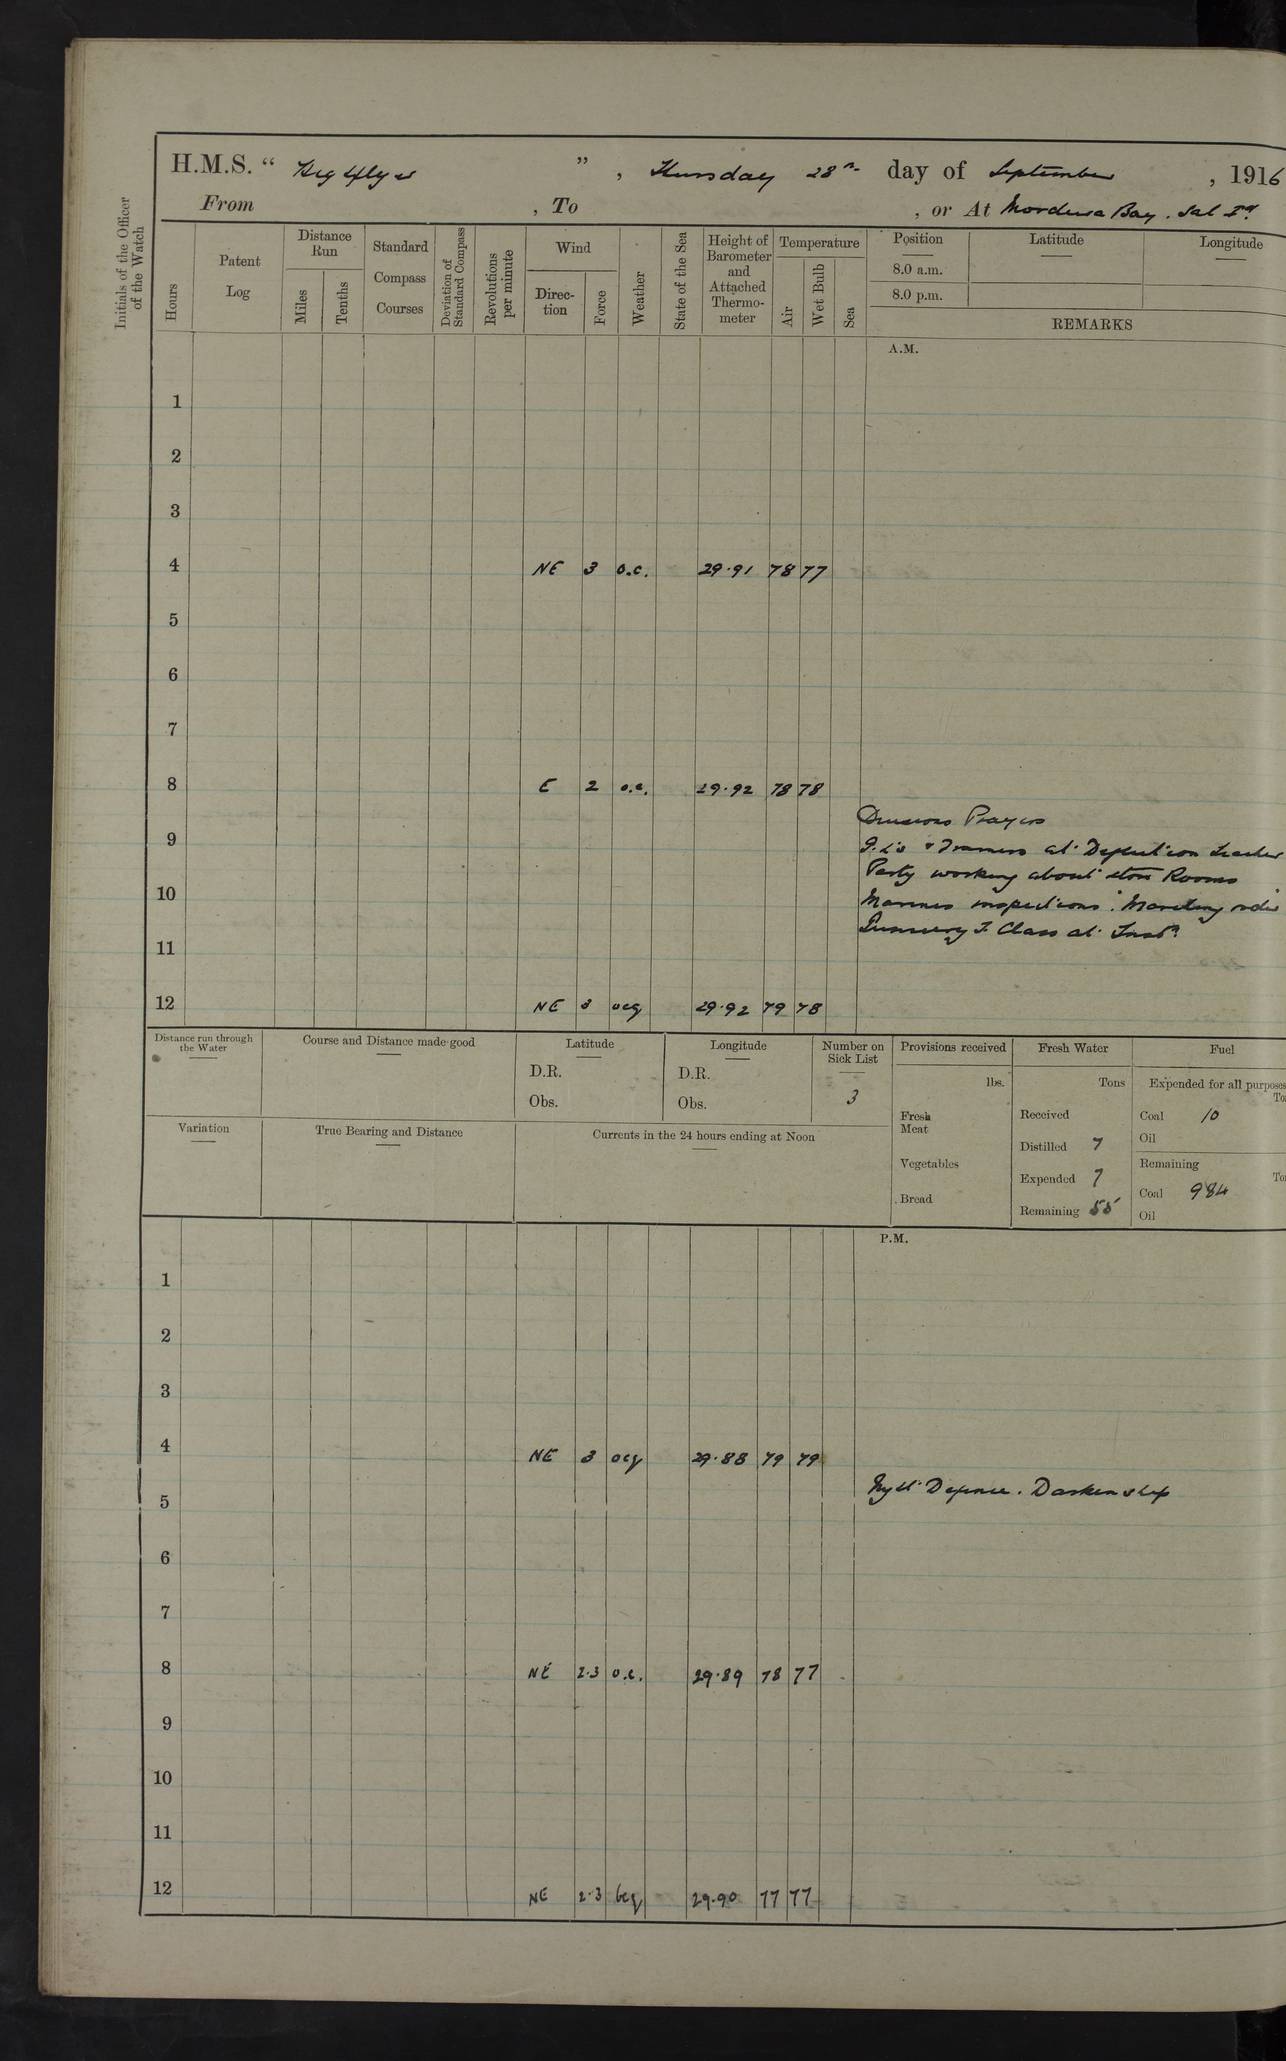 H.M.S. " Highflyer ", Thursday 28th day of September, 1916
From , To , or At Mordeira Bay. Sal Id
Initials of the Officer of the Watch
Hours
Patent Log
Distance Run
Miles
Tenths
Standard Compass Courses
Deviation of Standard Compass
Revolutions per minute
Wind
Direction
Force
Weather
State of the Sea
Height of Barometer and Attached Thermometer
Temperature
Air
Wet Bulb
Sea
Position
8.0 a.m.
8.0 p.m.
Latitude
Longitude
REMARKS
A.M.
1
2
3
4 NE 3 o.c. 29.91 78 77
5
6
7
8 E 2 o.c. 29.92 78 78
Divisions Prayers
9
G.L's & Trainers at Deflection Teacher
Party working about store Rooms
10
Marines inspections. Marching order
Gunnery T. Class at Instn
11
12 NE 3 ocq 29.92 79 78
Distance run through the Water
Course and Distance made good
Latitude
D.R.
Obs.
Longitude
D.R.
Obs.
Number on Sick List
3
Provisions received
lbs.
Fresh Meat
Vegetables
Bread
Fresh Water
Tons
Received
Distilled 7
Expended 7
Remaining 55
Fuel
Expended for all purposes
To
Coal 10
Oil
Remaining
To
Coal 984
Oil
Variation
True Bearing and Distance
Currents in the 24 hours ending at Noon
P.M.
1
2
3
4 NE 3 ocq 29.88 79 79
Night Defence. Darken ship
5
6
7
8 NE 2.3 o.c. 29.89 78 77
9
10
11
12 NE 2.3 bcq 29.90 77 77